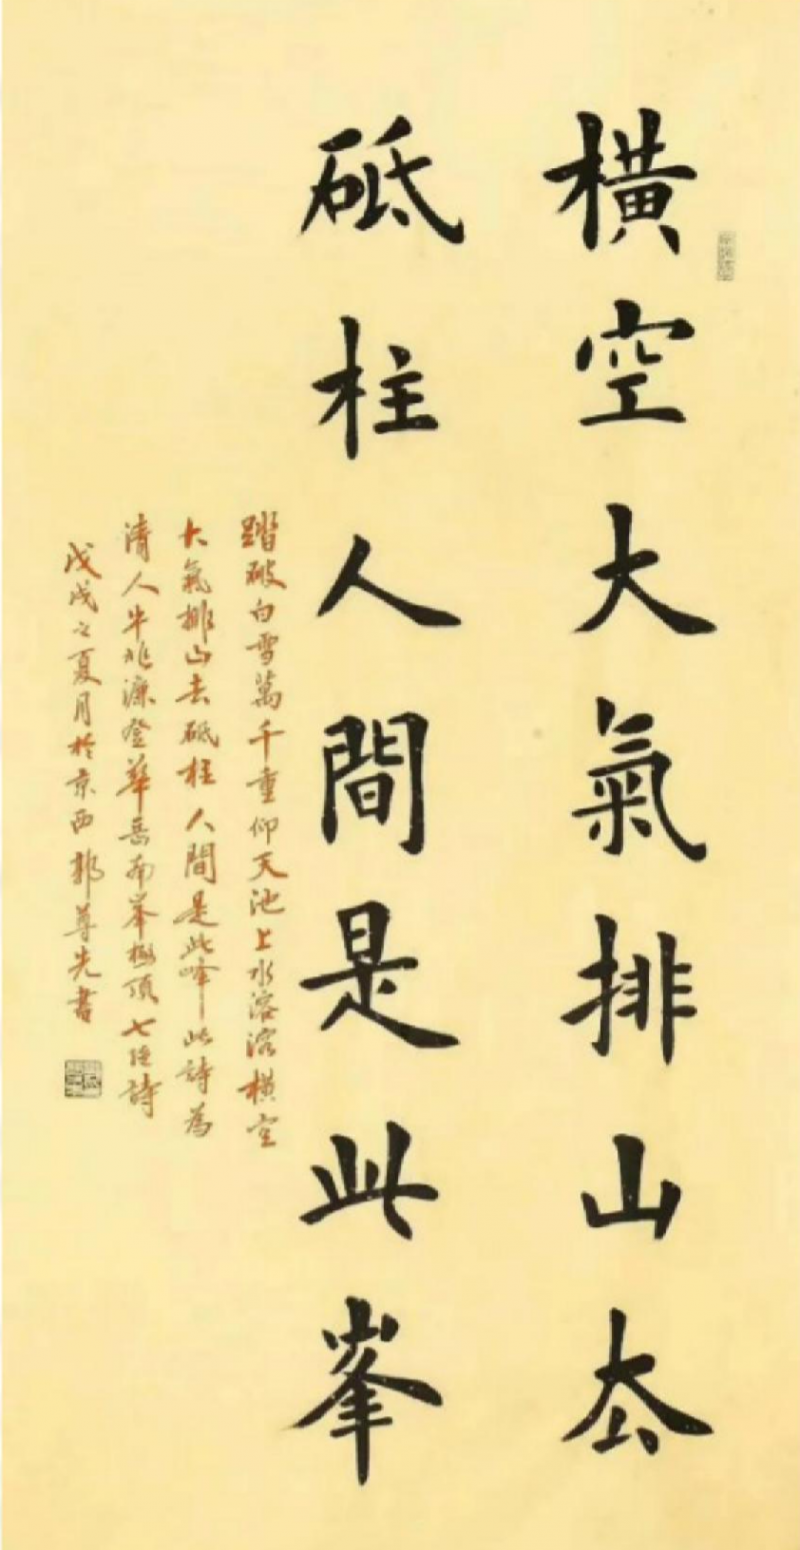 橫空大氣排山去
砥柱人間是此峯
踏破白雪萬千重仰天池上水溶溶橫空
大氣排山去砥柱人間是此峰此詩為
清人牛兆濂登華岳南峯極頂七絕詩
戊戌之夏月於京西郭尊先書